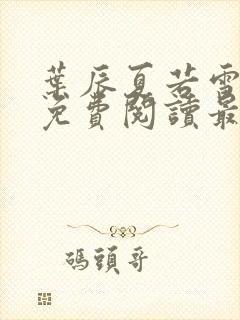 葉辰夏若雪
免費閱讀最
碼頭哥